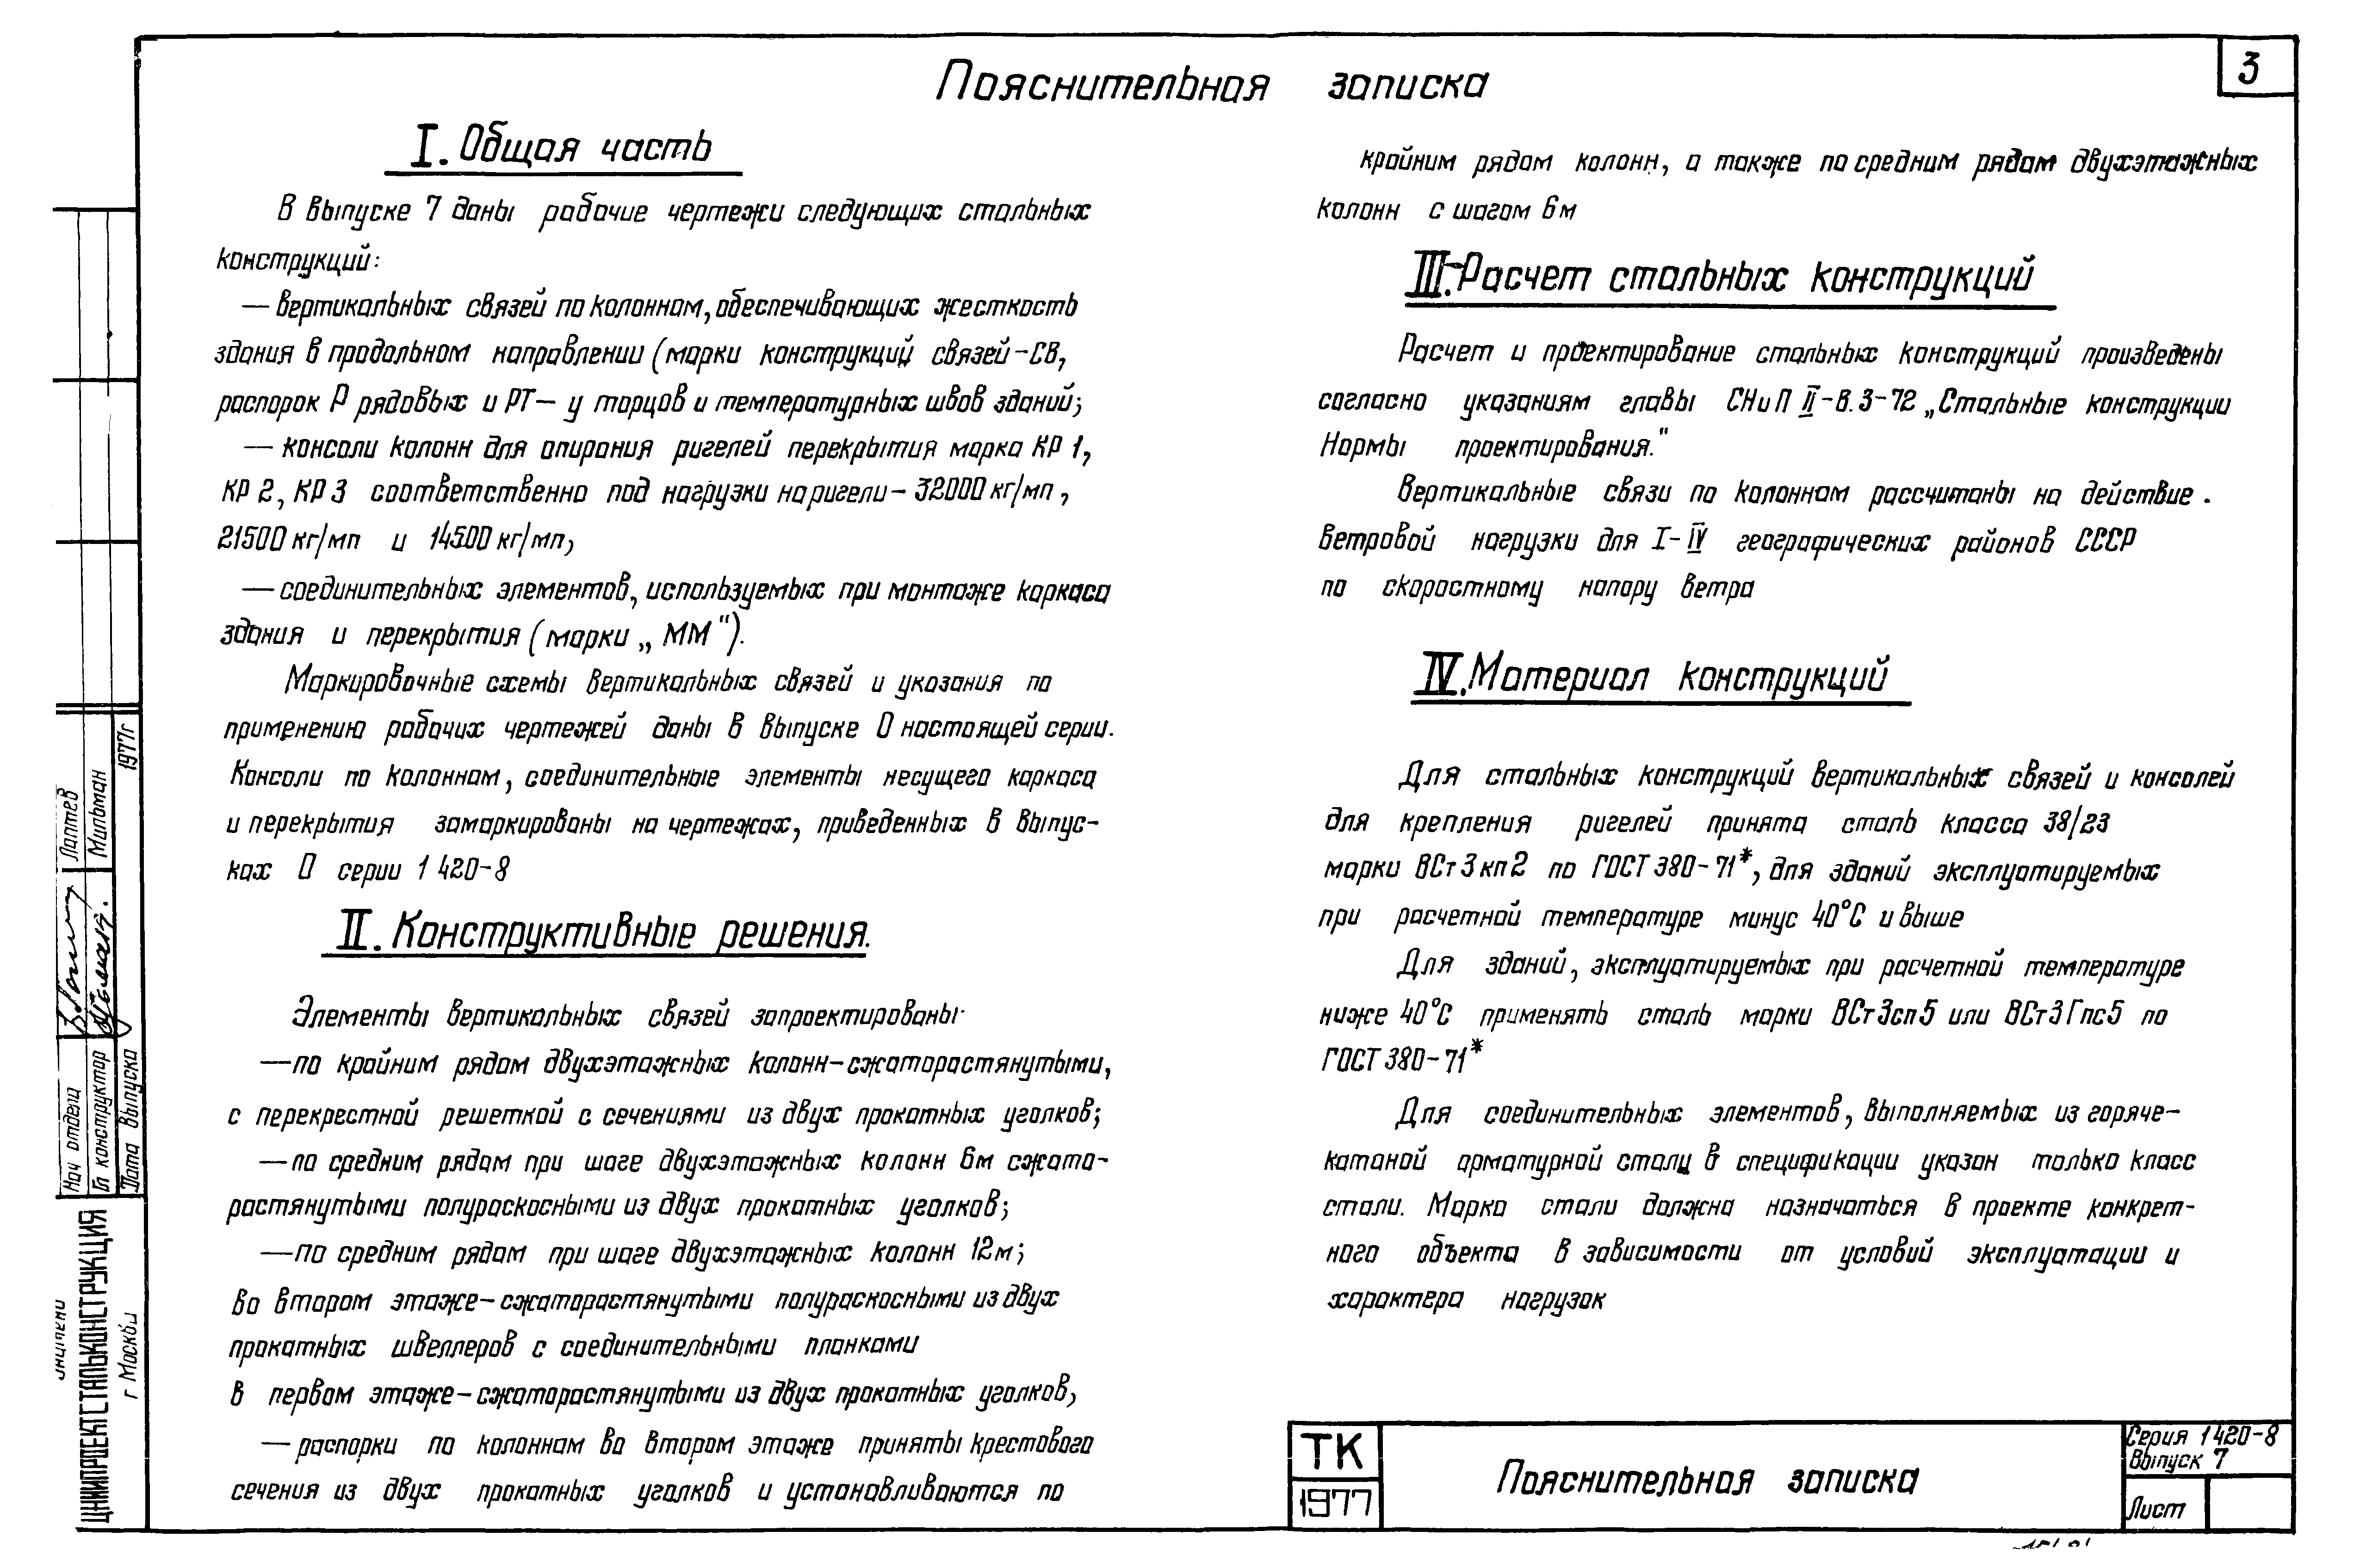 3
Пояснительная записка
I. Общая часть
В выпуске 7 даны рабочие чертежи следующих стальных
конструкций:
— вертикальных связей по колоннам, обеспечивающих жесткость
здания в продольном направлении (марки конструкций связей-СВ,
распорок Р рядовых и РТ— у торцов и температурных швов зданий;
— консоли колонн для опирания ригелей перекрытия марка КР 1,
КР 2, КР 3 соответственно под нагрузки на ригели - 32000 кг/мп,
21500 кг/мп и 14500 кг/мп,
— соединительных элементов, используемых при монтаже каркаса
здания и перекрытия (марки „ММ").
Маркировочные схемы вертикальных связей и указания по
применению рабочих чертежей даны в выпуске 0 настоящей серии.
Консоли по колоннам, соединительные элементы несущего каркаса
и перекрытия замаркированы на чертежах, приведенных в выпус-
ках 0 серии 1 420-8
II. Конструктивные решения.
Элементы вертикальных связей запроектированы
— по крайним рядам двухэтажных колонн-сжаторастянутыми,
с перекрестной решеткой с сечениями из двух прокатных уголков;
— по средним рядам при шаге двухэтажных колонн 6м сжато-
растянутыми полураскосными из двух прокатных уголков;
— по средним рядам при шаге двухэтажных колонн 12м;
во втором этаже-сжаторастянутыми полураскосными из двух
прокатных швеллеров с соединительными планками
в первом этаже-сжаторастянутыми из двух прокатных уголков,
— распорки по колоннам во втором этаже приняты крестового
сечения из двух прокатных уголков и устанавливаются по
крайним рядам колонн, а также по средним рядам двухэтажных
колонн с шагом 6м
III. Расчет стальных конструкций
Расчет и проектирование стальных конструкций произведены
согласно указаниям главы СНиП II-В.3-72 „Стальные конструкции
Нормы проектирования."
Вертикальные связи по колоннам рассчитаны на действие.
ветровой нагрузки для I-IV географических районов СССР
по скоростному напору ветра
IV. Материал конструкций
Для стальных конструкций вертикальных связей и консолей
для крепления ригелей принята сталь класса 38/23
марки ВСт3кп2 по ГОСТ 380-71*, для зданий эксплуатируемых
при расчетной температуре минус 40°С и выше
Для зданий, эксплуатируемых при расчетной температуре
ниже 40°С применять сталь марки ВСт3сп5 или ВСт3Гпс5 по
ГОСТ 380-71*
Для соединительных элементов, выполняемых из горяче-
катаной арматурной стали в спецификации указан только класс
стали. Марка стали должна назначаться в проекте конкрет-
ного объекта в зависимости от условий эксплуатации и
характера нагрузок
ТК
1977
Пояснительная записка
Серия 1 420-8
Выпуск 7
Лист
Нач отдела Лаптев
Гл конструктор Мильман
Дата выпуска 1977г
ЦНИИПРОЕКТСТАЛЬКОНСТРУКЦИЯ
г Москва